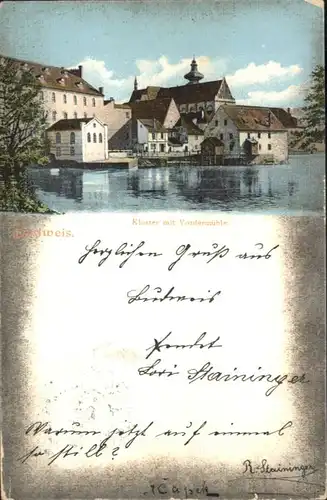 Kloster mit Vordermühle.
Budweis.
Herzlichen Gruß aus
Budweis
sendet
Lori Staininger
Warum jetzt auf einmal
so still?
R. Staininger